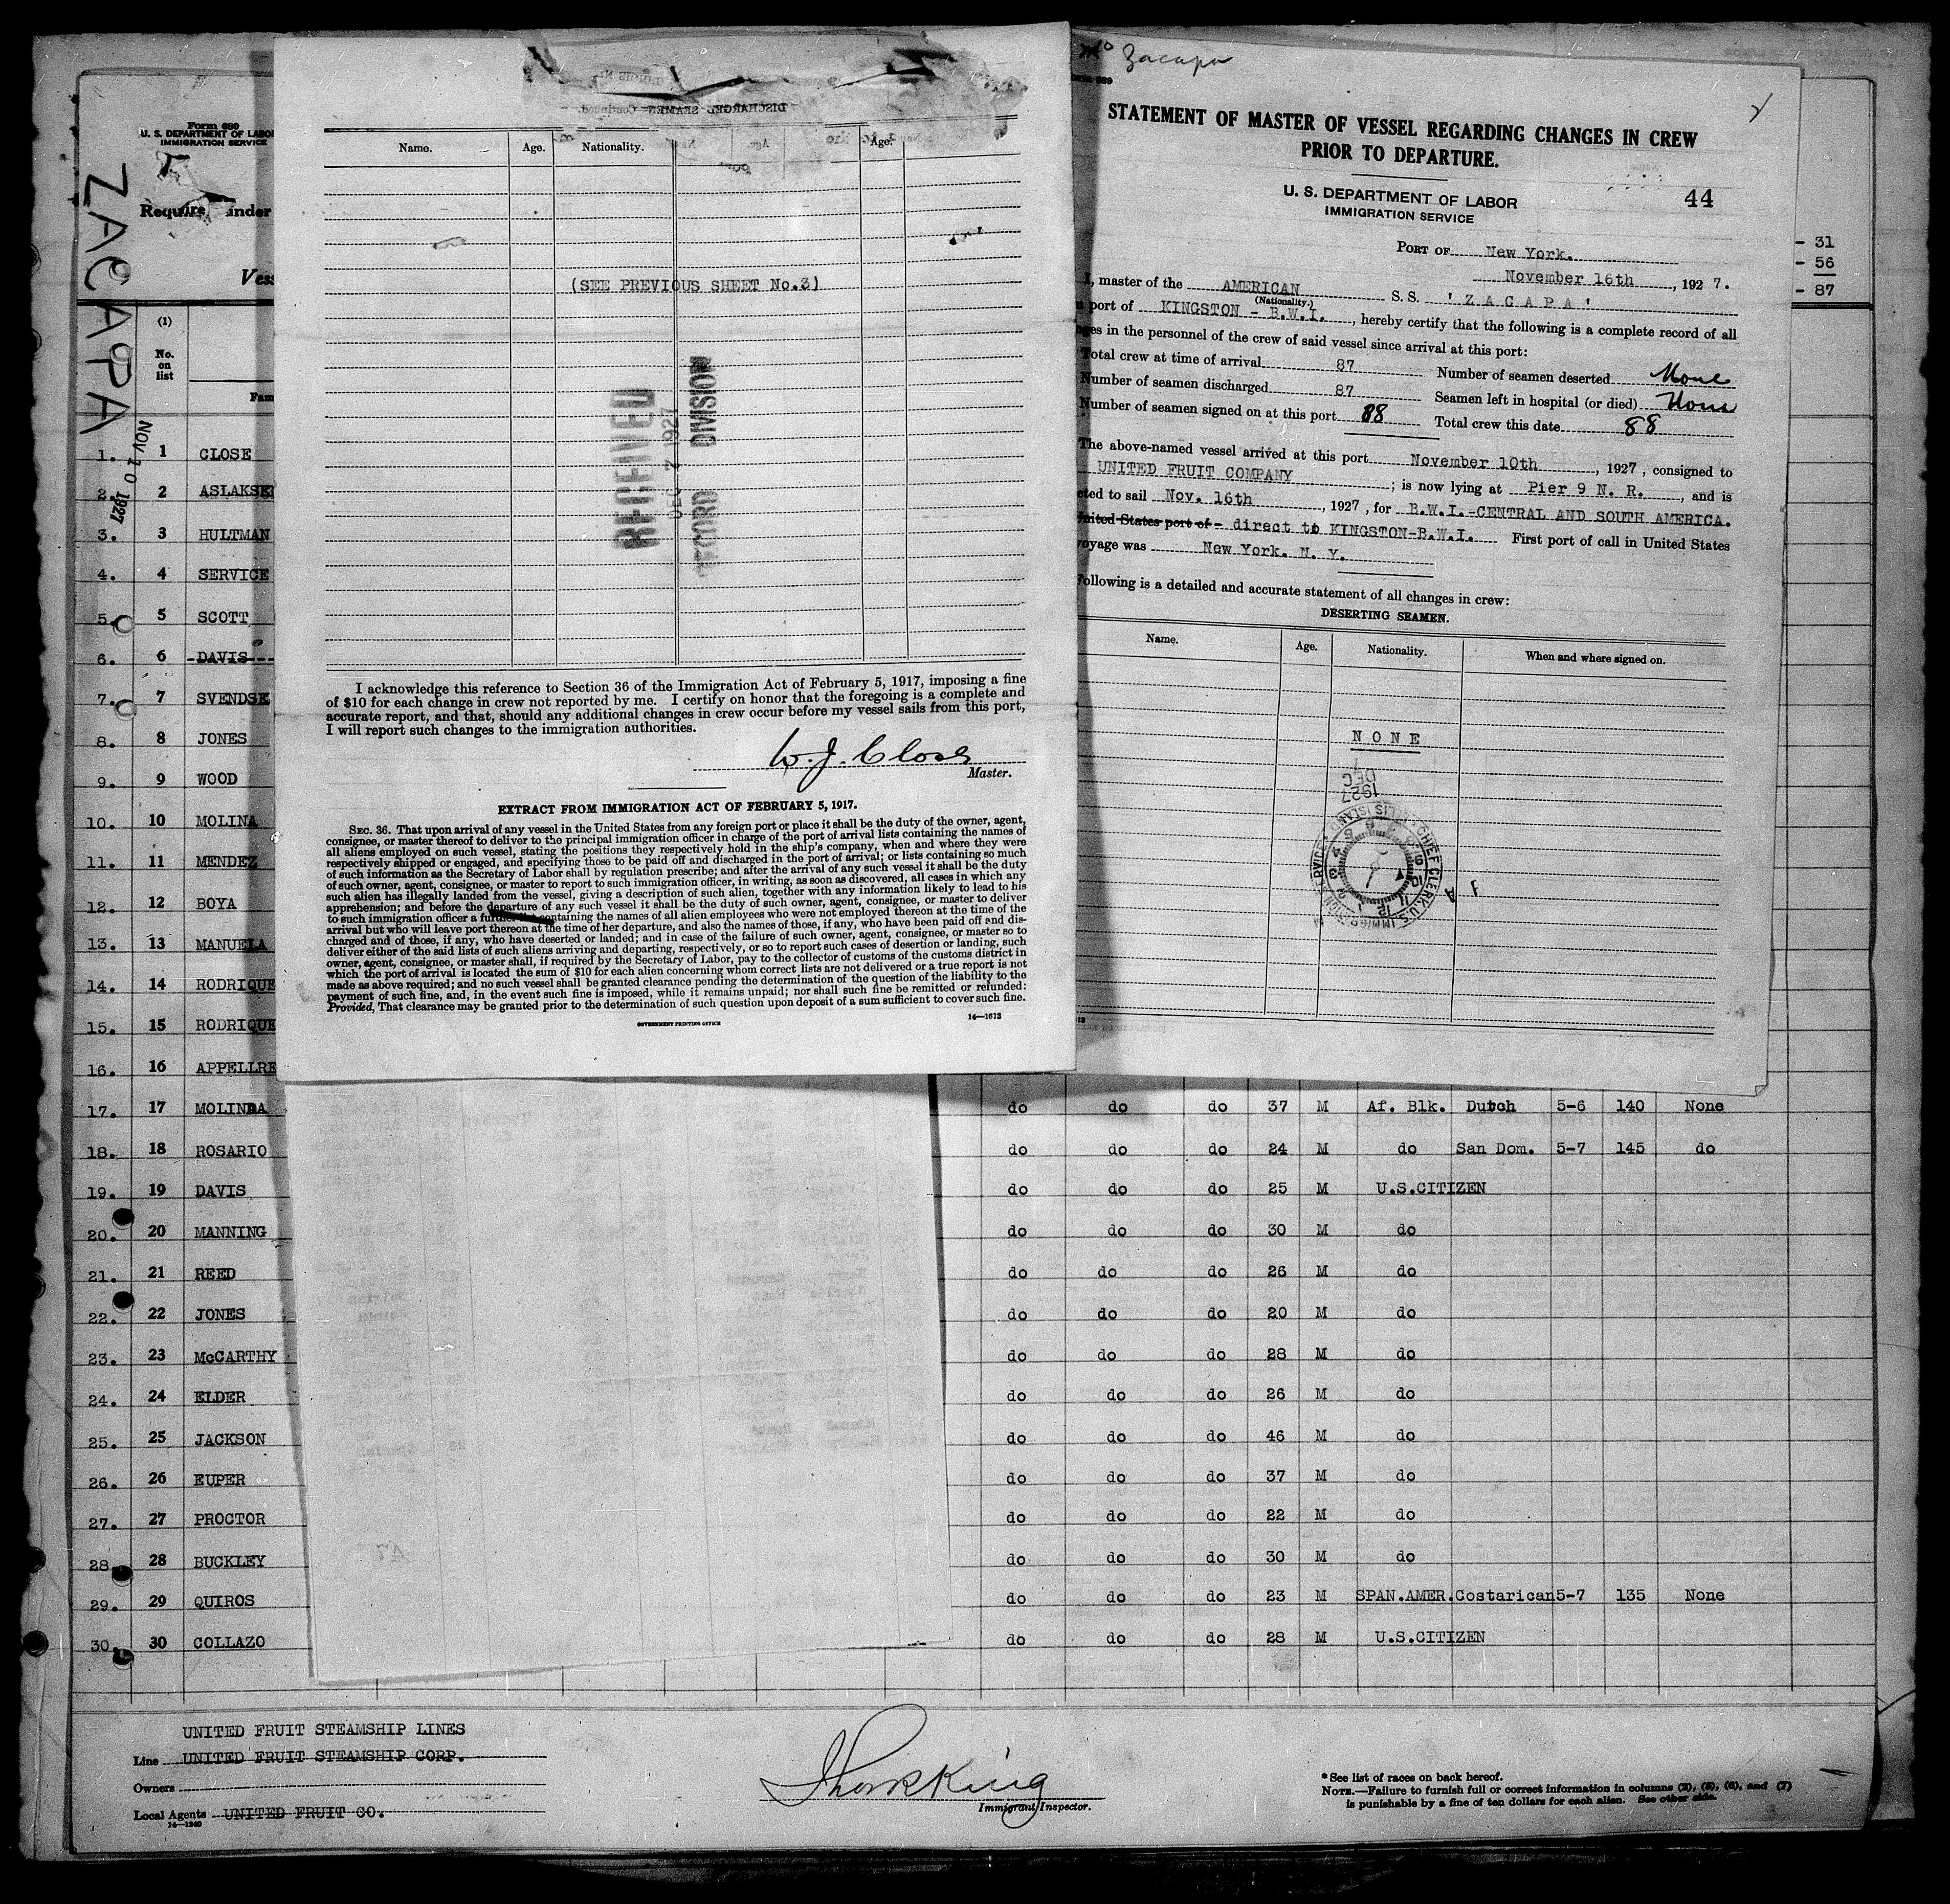 Form 680
U. S. DEPARTMENT OF LABOR
IMMIGRATION SERVICE
ZACAPA
NOV 10 1927
Name. Age. Nationality. Age.
(SEE PREVIOUS SHEET No.3)
RECEIVED
DEC 2 1927
RECORD DIVISION
I acknowledge this reference to Section 36 of the Immigration Act of February 5, 1917, imposing a fine
of $10 for each change in crew not reported by me. I certify on honor that the foregoing is a complete and
accurate report, and that, should any additional changes in crew occur before my vessel sails from this port,
I will report such changes to the immigration authorities.
W. J. Close
Master.
EXTRACT FROM IMMIGRATION ACT OF FEBRUARY 5, 1917.
SEC. 36. That upon arrival of any vessel in the United States from any foreign port or place it shall be the duty of the owner, agent,
consignee, or master thereof to deliver to the principal immigration officer in charge of the port of arrival lists containing the names of
all aliens employed on such vessel, stating the positions they respectively hold in the ship's company, when and where they were
respectively shipped or engaged, and specifying those to be paid off and discharged in the port of arrival; or lists containing so much
of such information as the Secretary of Labor shall by regulation prescribe; and after the arrival of any such vessel it shall be the duty
of such owner, agent, consignee, or master to report to such immigration officer, in writing, as soon as discovered, all cases in which any
such alien has illegally landed from the vessel, giving a description of such alien, together with any information likely to lead to his
apprehension; and before the departure of any such vessel it shall be the duty of such owner, agent, consignee, or master to deliver
to such immigration officer a further containing the names of all alien employees who were not employed thereon at the time of the
arrival but who will leave port thereon at the time of her departure, and also the names of those, if any, who have been paid off and dis-
charged and of those, if any, who have deserted or landed; and in case of the failure of such owner, agent, consignee, or master so to
deliver either of the said lists of such aliens arriving and departing, respectively, or so to report such cases of desertion or landing, such
owner, agent, consignee, or master shall, if required by the Secretary of Labor, pay to the collector of customs of the customs district in
which the port of arrival is located the sum of $10 for each alien concerning whom correct lists are not delivered or a true report is not
made as above required; and no such vessel shall be granted clearance pending the determination of the question of the liability to the
payment of such fine, and, in the event such fine is imposed, while it remains unpaid; nor shall such fine be remitted or refunded:
Provided, That clearance may be granted prior to the determination of such question upon deposit of a sum sufficient to cover such fine.
GOVERNMENT PRINTING OFFICE 14—1613
Zacapa
STATEMENT OF MASTER OF VESSEL REGARDING CHANGES IN CREW
PRIOR TO DEPARTURE.
U. S. DEPARTMENT OF LABOR
IMMIGRATION SERVICE
44
PORT OF New York.
November 16th, 1927.
I, master of the AMERICAN S. S. 'ZACAPA'
(Nationality.)
port of KINGSTON - B.W.I., hereby certify that the following is a complete record of all
in the personnel of the crew of said vessel since arrival at this port:
Total crew at time of arrival 87 Number of seamen deserted None
Number of seamen discharged 87 Seamen left in hospital (or died) None
Number of seamen signed on at this port 88 Total crew this date 88
The above-named vessel arrived at this port November 10th, 1927, consigned to
UNITED FRUIT COMPANY; is now lying at Pier 9 N. R., and is
to sail Nov. 16th, 1927, for B.W.I.-CENTRAL AND SOUTH AMERICA.
United States port of - direct to KINGSTON-B.W.I. First port of call in United States
voyage was New York. N. Y.
Following is a detailed and accurate statement of all changes in crew:
DESERTING SEAMEN.
Name. Age. Nationality. When and where signed on.
NONE
DEC 1927
- 31
- 56
- 87
(1)
No. on list
1. 1 CLOSE
2. 2 ASLAKSEN
3. 3 HULTMAN
4. 4 SERVICE
5. 5 SCOTT
6. 6 DAVIS
7. 7 SVENDSE
8. 8 JONES
9. 9 WOOD
10. 10 MOLINA
11. 11 MENDEZ
12. 12 BOYA
13. 13 MANUELA
14. 14 RODRIQUE
15. 15 RODRIQUE
16. 16 APPELLRE
17. 17 MOLINDA do do do 37 M Af. Blk. Dutch 5-6 140 None
18. 18 ROSARIO do do do 24 M do San Dom. 5-7 145 do
19. 19 DAVIS do do do 25 M U.S.CITIZEN
20. 20 MANNING do do do 30 M do
21. 21 REED do do do 26 M do
22. 22 JONES do do do 20 M do
23. 23 McCARTHY do do do 28 M do
24. 24 ELDER do do do 26 M do
25. 25 JACKSON do do do 46 M do
26. 26 EUPER do do do 37 M do
27. 27 PROCTOR do do do 22 M do
28. 28 BUCKLEY do do do 30 M do
29. 29 QUIROS do do do 23 M SPAN.AMER. Costarican 5-7 135 None
30. 30 COLLAZO do do do 28 M U.S.CITIZEN
UNITED FRUIT STEAMSHIP LINES
Line UNITED FRUIT STEAMSHIP CORP.
Owners
Local Agents UNITED FRUIT CO.
14—1240
Immigrant Inspector.
* See list of races on back hereof.
NOTE.—Failure to furnish full or correct information in columns (2), (5), (6), and (7)
is punishable by a fine of ten dollars for each alien. See other side.